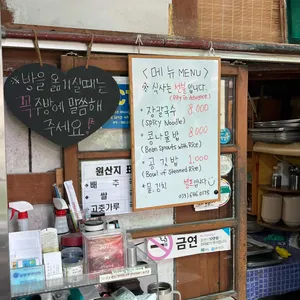 ※방을 옮기실때는
꼭 주방에 말씀해
주세요!!
<메뉴 MENU>
※ 식사는 선불 입니다.
(Pay in Advance)
· 장칼국수 8,000
(Spicy Noodle)
· 콩나물밥 8,000
(Bean Sprouts with Rice)
· 공기밥 1,000
(Bowl of Steamed Rice)
· 물, 김치 셀프입니다
원산지 표
배추
쌀
고춧가루
금연